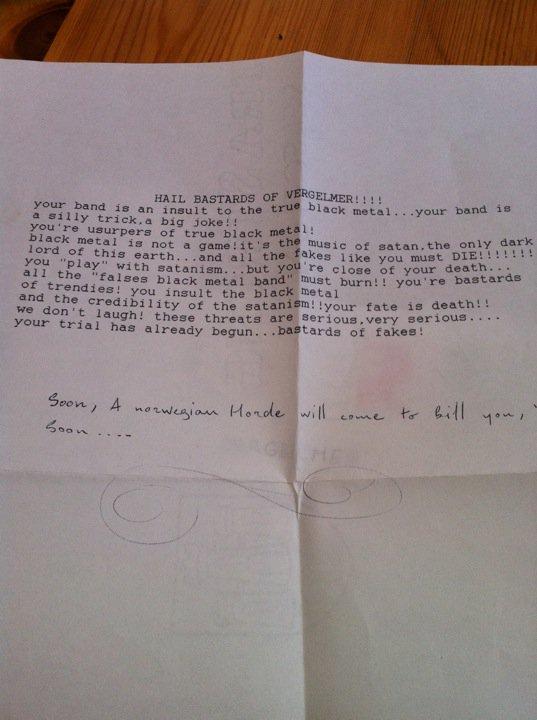 HAIL BASTARDS OF VERGELMER!!!!
your band is an insult to the true black metal...your band is
a silly trick,a big joke!!
you're usurpers of true black metal!
black metal is not a game!it's the music of satan,the only dark
lord of this earth...and all the fakes like you must DIE!!!!!!!
you "play" with satanism...but you're close of your death...
all the "falses black metal band" must burn!! you're bastards
of trendies! you insult the black metal
and the credibility of the satanism!!your fate is death!!
we don't laugh! these threats are serious,very serious....
your trial has already begun...bastards of fakes!
Soon, A norwegian Horde will come to bill you,
Soon ....